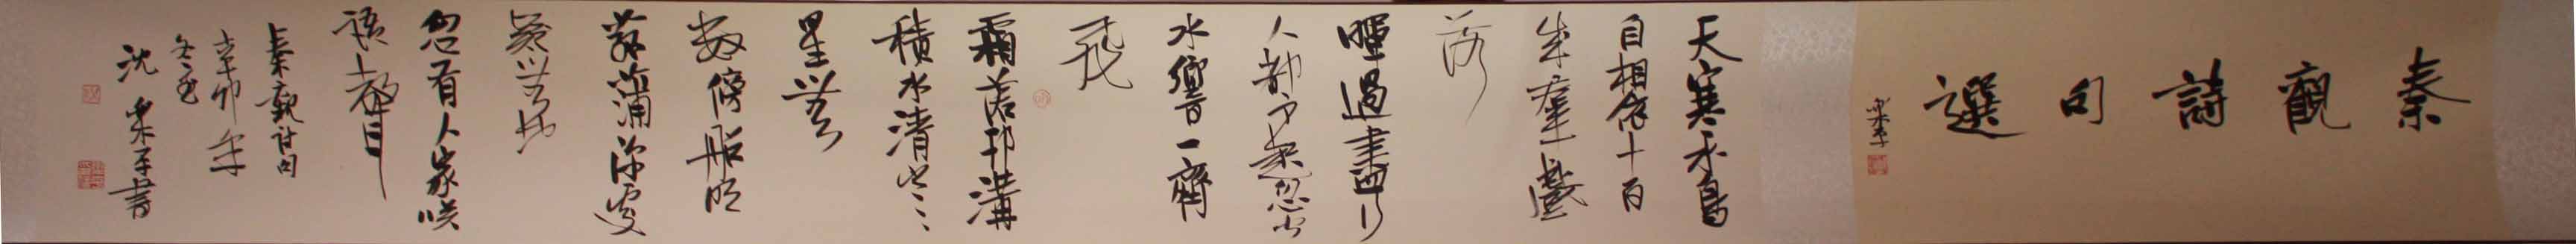 秦觀詩句選
樂平
天寒水鳥
自相依十百
成群戲
落
暉過盡行
人都不起忽聞
水響一齊
飛
霜落邗溝
積水清寒
星無
數傍船明
菰蒲深處
疑無地
忽有人家咲
語聲
秦觀詩句
辛卯年
冬至
沈樂平書